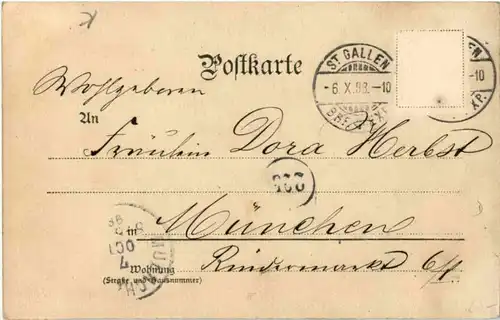 Postkarte
ST. GALLEN
-6. X. 98.-10
Wohlgeboren
An
Fräulein Dora Herbst
in München
7 OCT
Wohnung
(Straße und Hausnummer)
Rindermarkt 6/1